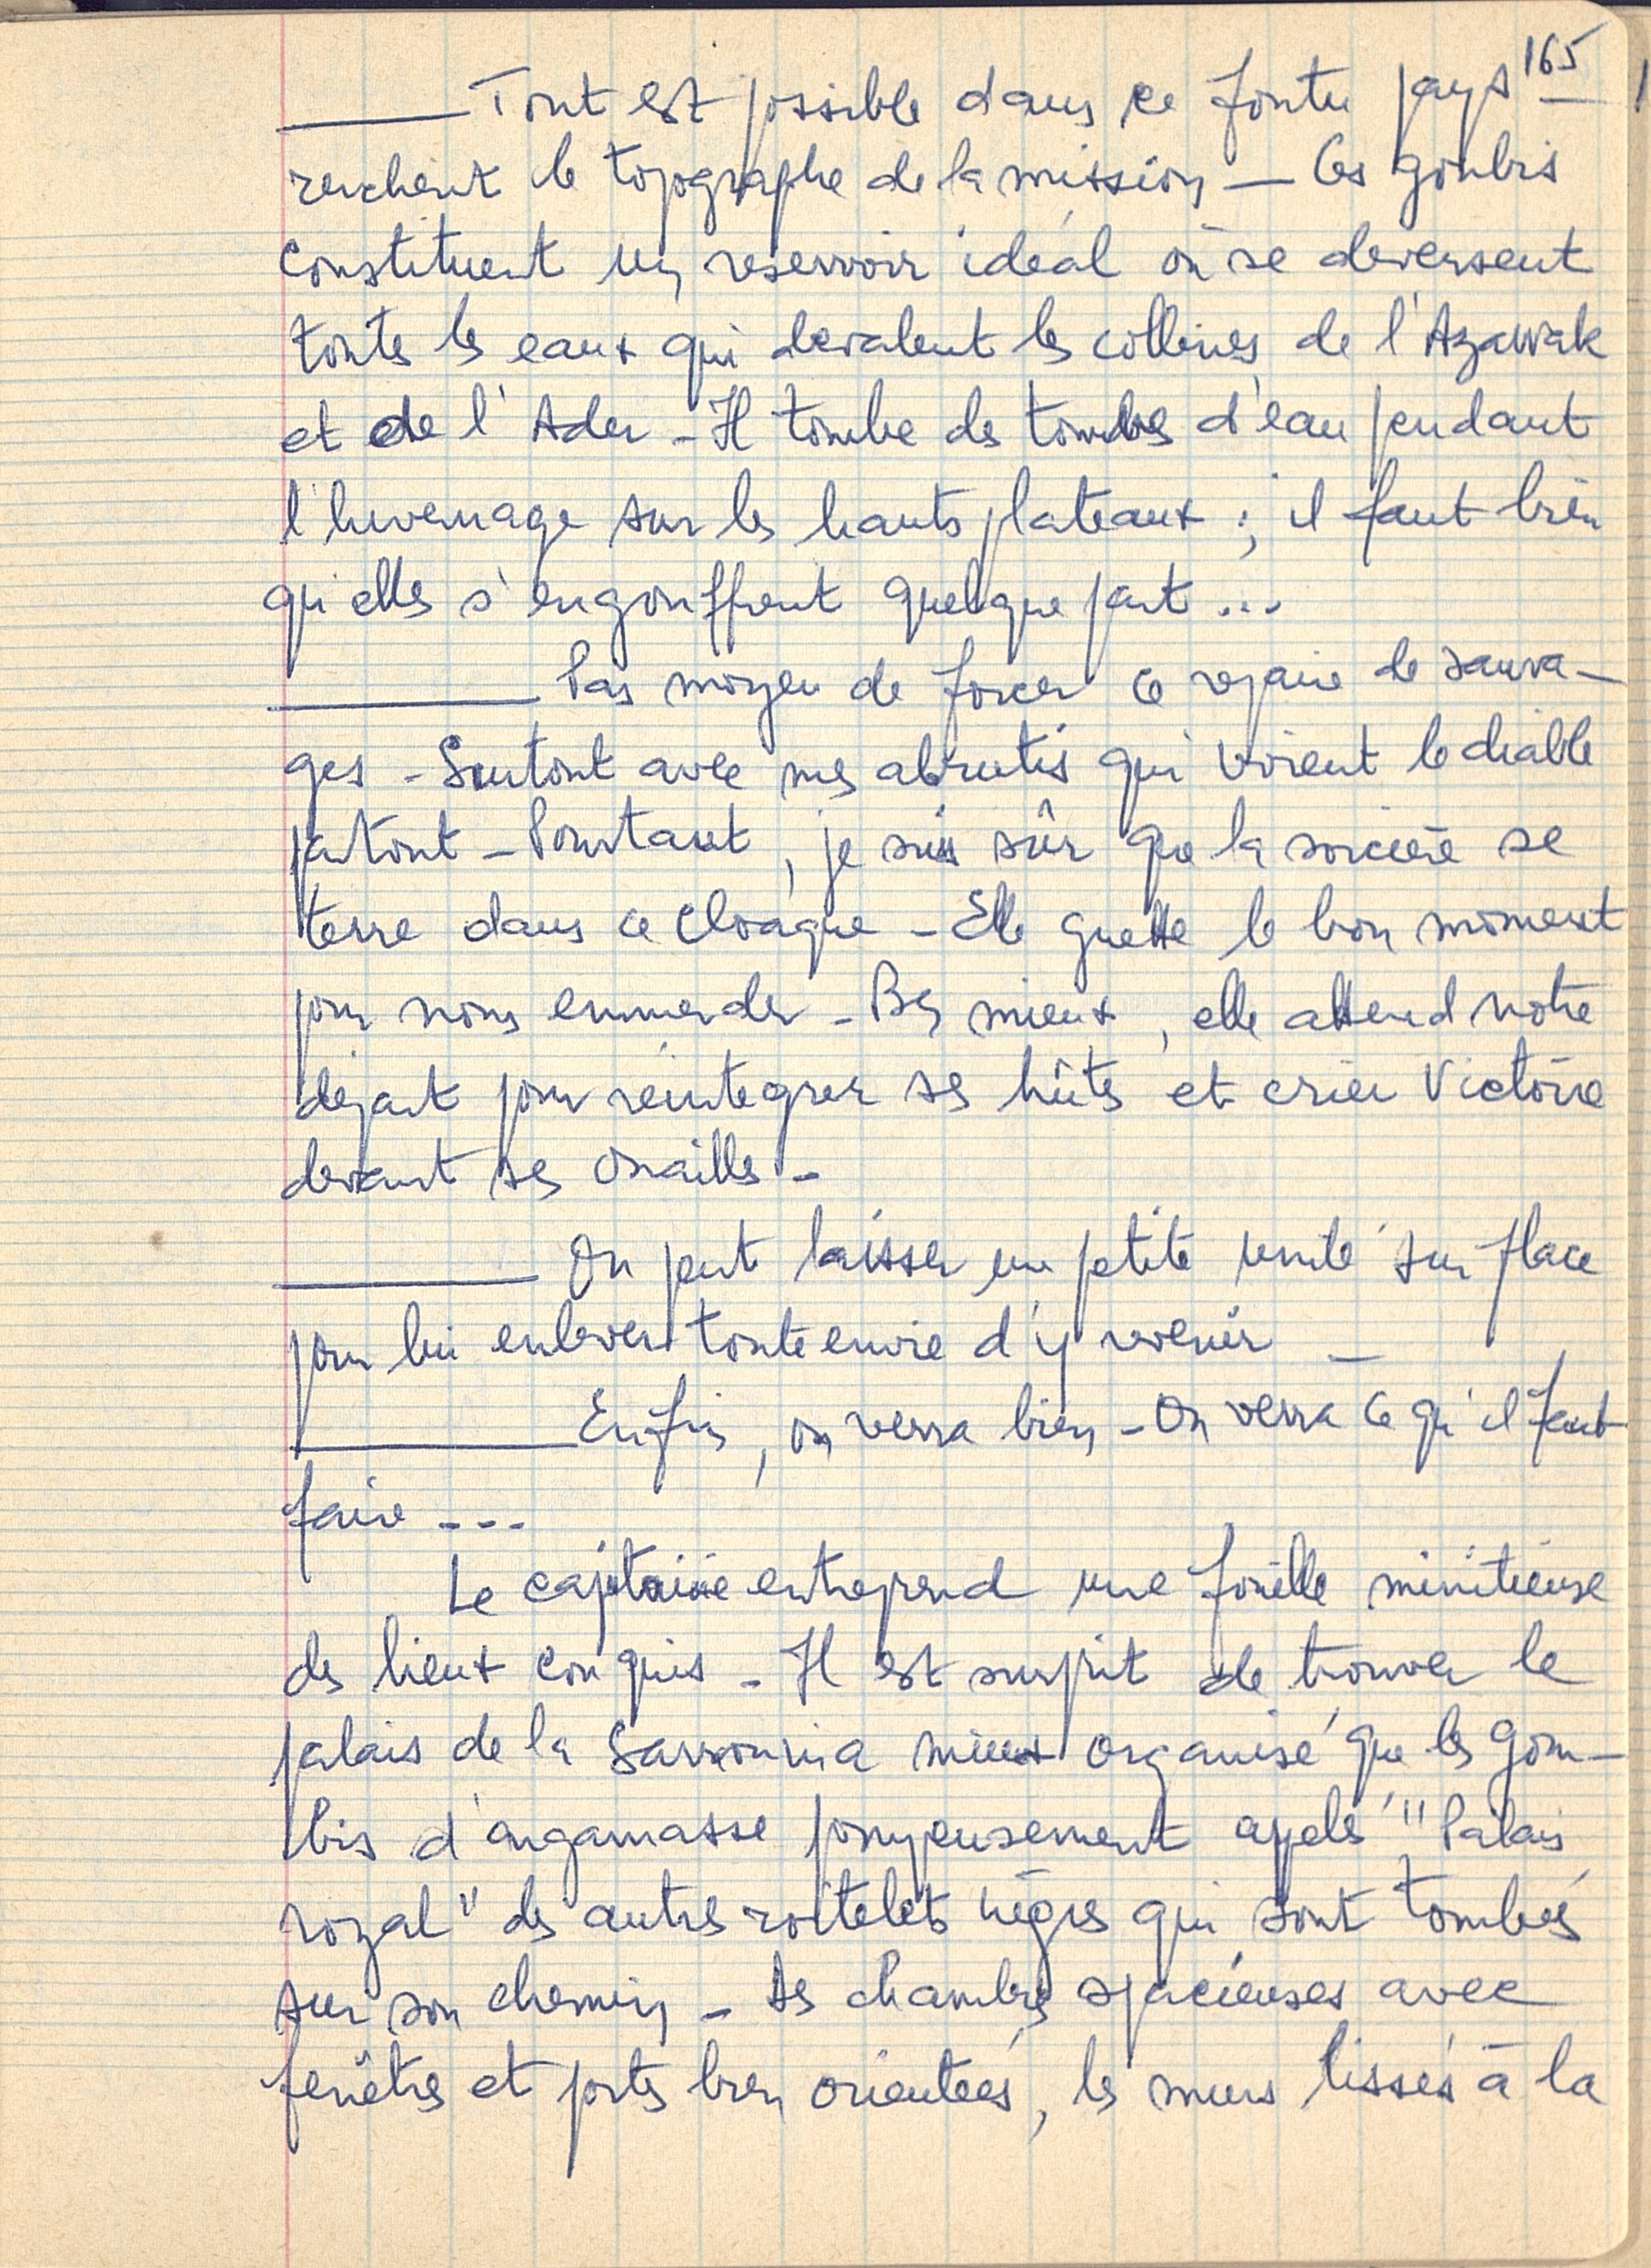 165
— Tout est possible dans ce foutu pays —
renchérit le topographe de la mission — Ces goulbis
constituent un réservoir idéal où se déversent
toutes les eaux qui dévalent les collines de l'Azawak
et de l'Ader - Il tombe des tombes d'eau pendant
l'hivernage sur les hauts plateaux ; il faut bien
qu'elles s'engouffrent quelque part ...
— Pas moyen de forcer ce repaire de sauva-
ges - Surtout avec mes abrutis qui voient le diable
partout - Pourtant, je suis sûr que la sorcière se
terre dans ce cloaque - Elle guette le bon moment
pour nous emmerder - Bn mieux, elle attend notre
départ pour réintégrer ses huttes et crier Victoire
devant ses ouailles -
— On peut laisser une petite unité sur place
pour lui enlever toute envie d'y revenir —
— Enfin, on verra bien - On verra ce qu'il faut
faire ---
Le capitaine entreprend une fouille minutieuse
des lieux conquis - Il est surprit de trouver le
palais de la Sarraounia mieux organisé que les gour-
bis d'argamasse pompeusement appelé "Palais
royal" des autres roitelets nègres qui sont tombés
sur son chemin - Les chambres spacieuses avec
fenêtres et portes bien orientées, les murs lissés à la